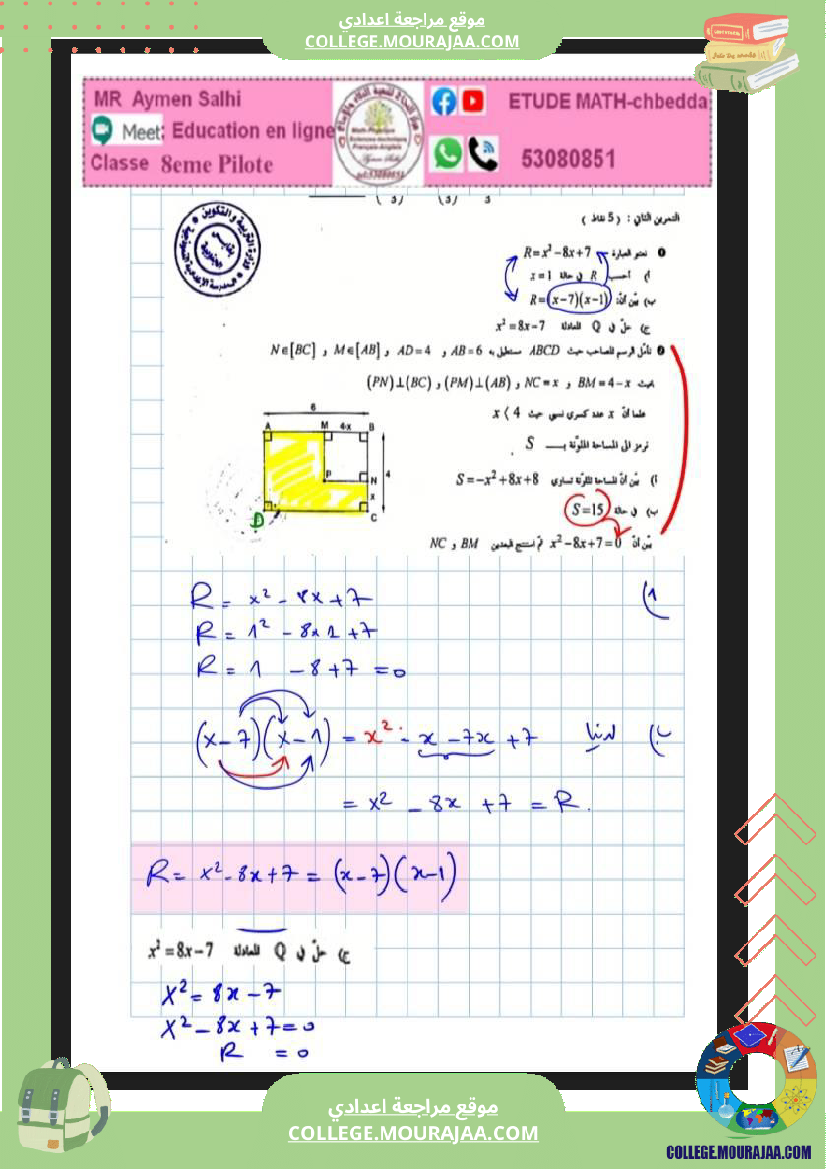 موقع مراجعة اعدادي
COLLEGE.MOURAJAA.COM
MR Aymen Salhi
Meet: Education en ligne
Classe 8eme Pilote
ETUDE MATH-chbedda
53080851
التمرين الثاني : ( 5 نقاط )
❶ نعتبر العبارة R=x²−8x+7
أ) أحسب R في حالة x=1
ب) بيّن أنّ: R=(x−7)(x−1)
ج) حلّ في Q المعادلة x²=8x−7
❷ تأمّل الرسم المصاحب حيث ABCD مستطيل به AB=6 و AD=4 و M∈[AB] و N∈[BC]
بحيث BM=4−x و NC=x و (PM)⊥(AB) و (PN)⊥(BC)
علما انّ x عدد كسري نسبي حيث x⟨4
نرمز الى المساحة الملوّنة بـــ S
أ) بيّن أنّ المساحة الملوّنة تساوي S=−x²+8x+8
ب) في حالة S=15
بيّن أنّ x²−8x+7=0 ثمّ استنتج البعدين BM و NC
6
A M 4-x B
P N 4
x
D C
1)
R = x² - 8x + 7
R = 1² - 8x1 + 7
R = 1 - 8 + 7 = 0
ب) لدينا
(x - 7)(x - 1) = x² - x - 7x + 7
= x² - 8x + 7 = R.
R = x² - 8x + 7 = (x - 7)(x - 1)
ج) حلّ في Q المعادلة x²=8x−7
x² = 8x - 7
x² - 8x + 7 = 0
R = 0
موقع مراجعة اعدادي
COLLEGE.MOURAJAA.COM
COLLEGE.MOURAJAA.COM